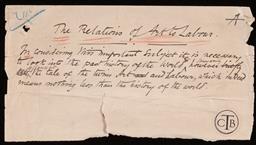 A
The Relations of Art to Labour.
In considering this important subject it is necessary
to look into the past history of the world, however briefly
the tale of the terms Art and Labour, which indeed
means nothing less than the history of the world.
CTB